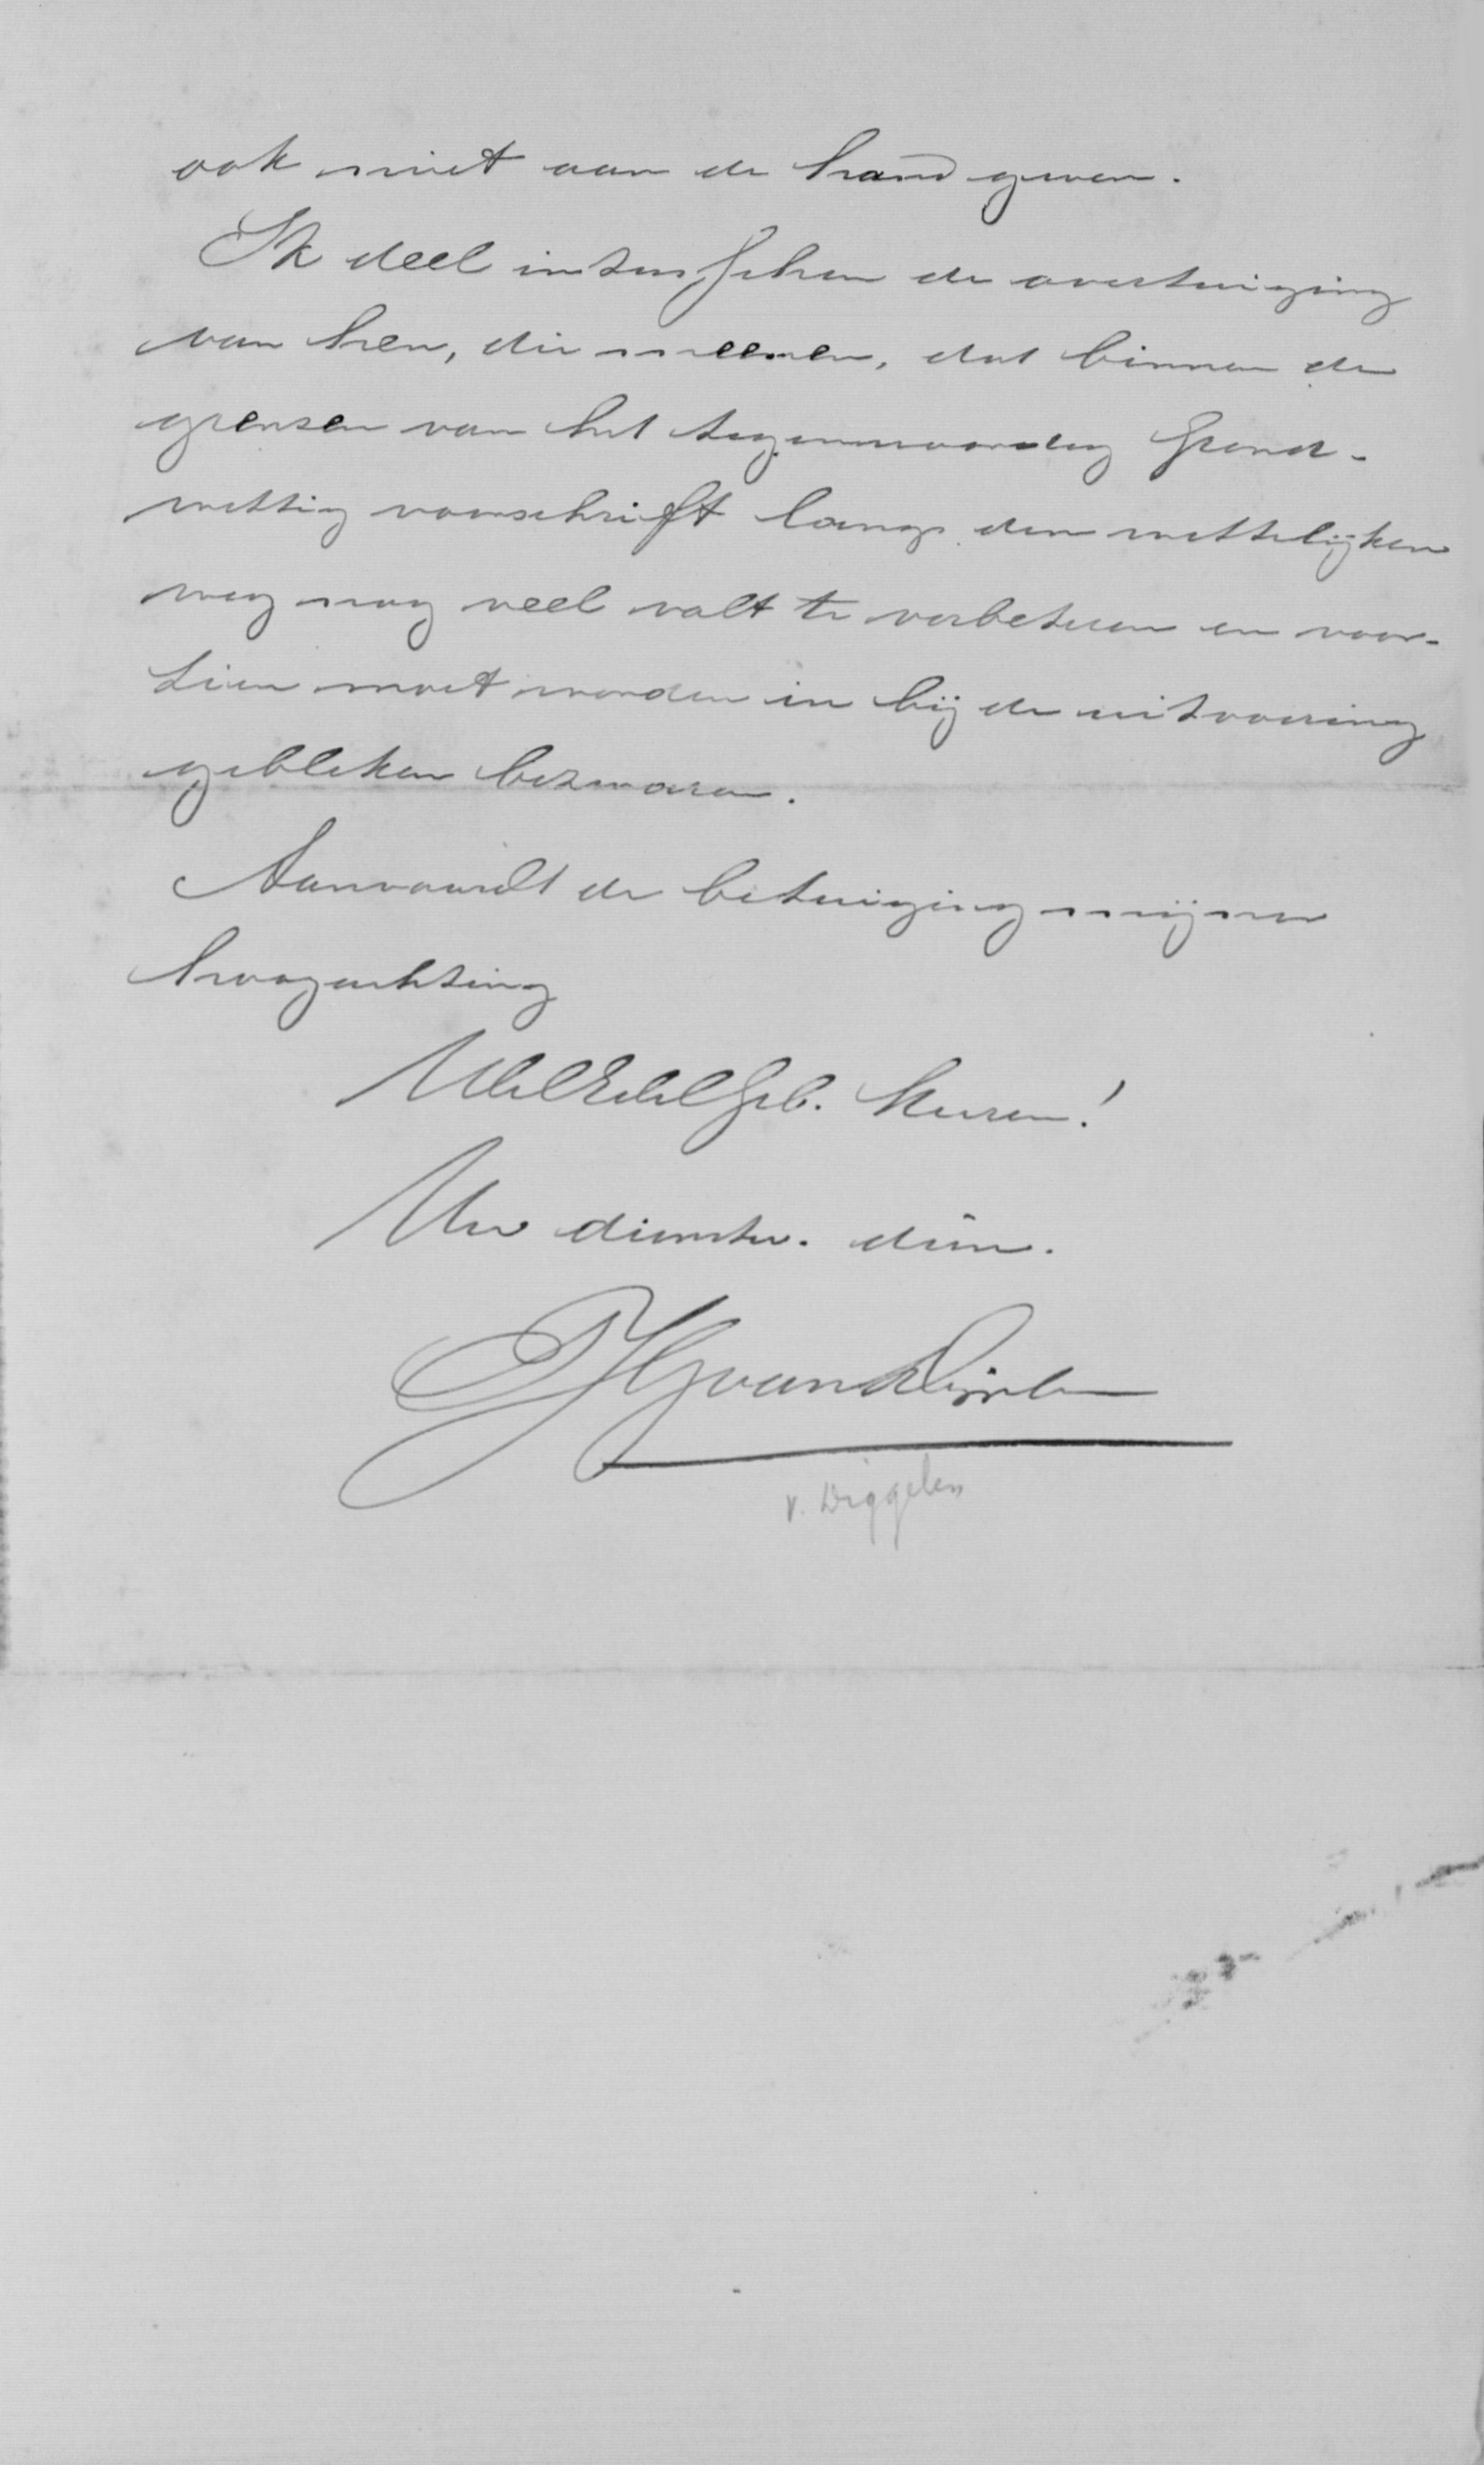 ook niet aan de hand geven.
Ik deel intusschen de overtuiging
van hen, die meenen, dat binnen de
grenzen van het tegenwoordig Grond-
wettig voorschrift langs den wettelijken
weg nog veel valt te verbeteren en voor-
zien moet worden in bij de uitvoering
gebleken bezwaren.
Aanvaardt de betuiging mijner
hoogachting
WelEdelGeb. Heeren!
Uw dienstw. dien.
van Diggelen
v. Diggelen